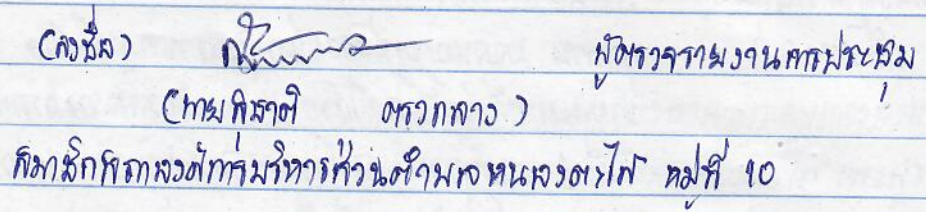 (ลงชื่อ) ผู้ตรวจรายงานการประชุม
(นายสุชาติ ตรวกลาง)
สมาชิกสภาองค์การบริหารส่วนตำบลหนองตะไก้ หมู่ที่ 10